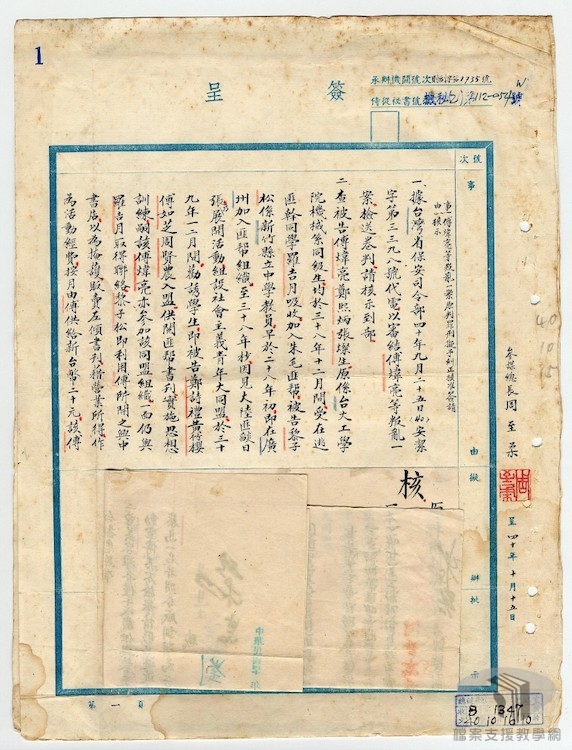 1
承辦機關號次
侍從秘書號
簽呈
號次
事由擬辦批示
參謀總長周至柔
呈 四十年十月十五日
事由：傅煒亮等叛亂一案
一、據台灣省保安司令部四十年九月二十五日(40)安潔
字第三三九八號代電以審結傅煒亮等叛亂一
案檢送卷判請核示到部
二、查被告傅煒亮鄭熙炳張燦生原係台大工學
院機械系同級生均於三十八年十二月間受在逃
匪幹同學羅吉月吸收加入朱毛匪幫被告黎子
松係新竹縣立中學教員早於二十八年初即在廣
州加入匪幫組織至三十八年秋因見大陸匪燄日
張乃展開活動組設社會主義青年大同盟於三十
九年一二月間勸誘學生即被告鄭詩禮黃竹櫻
傅如芝周賢農入盟供閱匪幫書刊實施思想
訓練嗣該傅煒亮亦參加該同盟組織一面仍與
羅吉月取得聯絡黎子松即利用傅所開之興中
書店以為掩護販賣左傾書刊將營業所得作
為活動經費按月由傅供給新台幣二十元該傅
核
40
10
15
第一頁
B 1347
40 10 16 10
檔案支援教學網